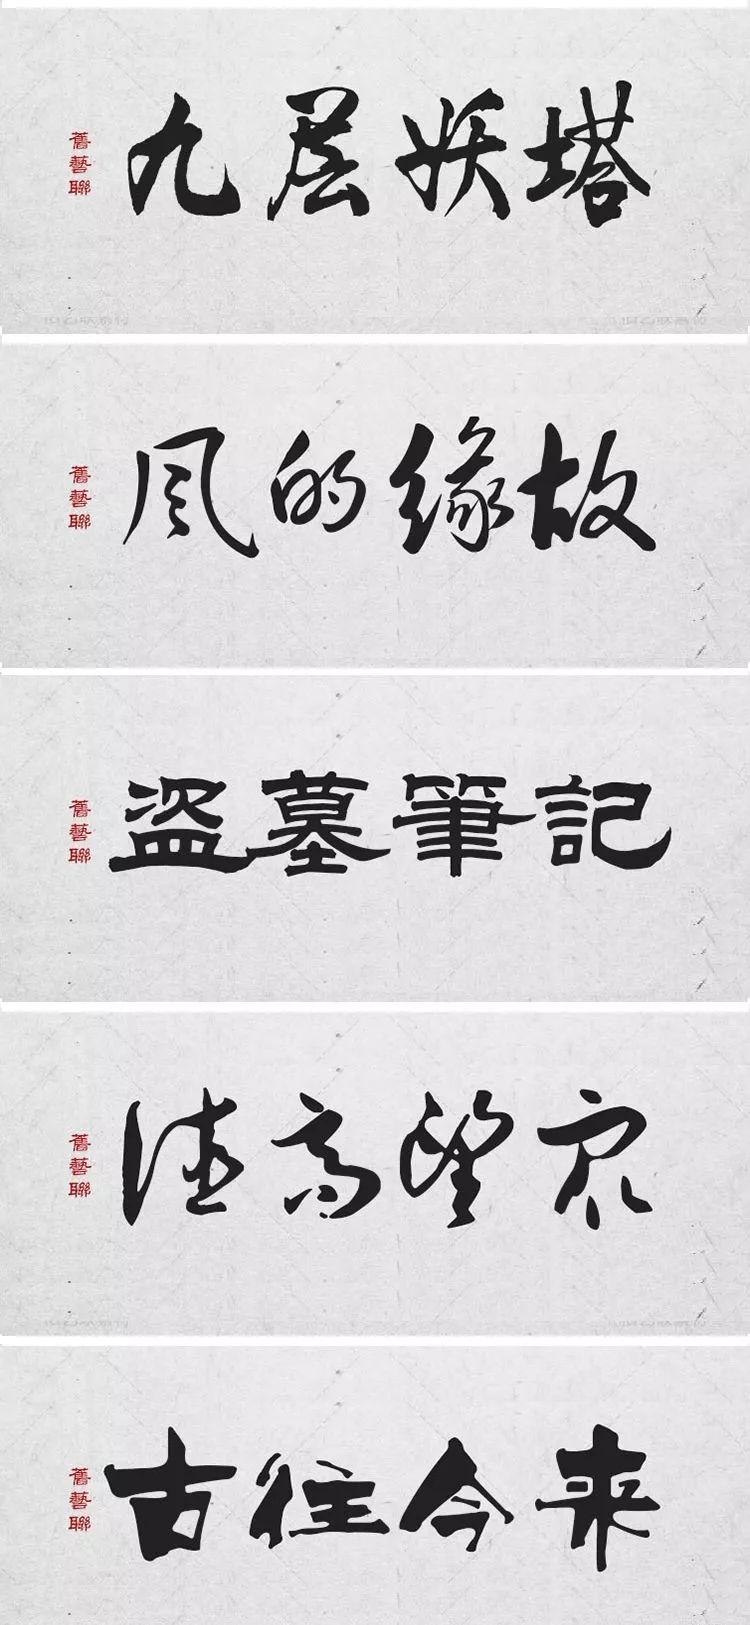 舊藝聯
九层妖塔
舊藝聯
风的缘故
舊藝聯
盗墓筆記
舊藝聯
德高望众
舊藝聯
古往今来